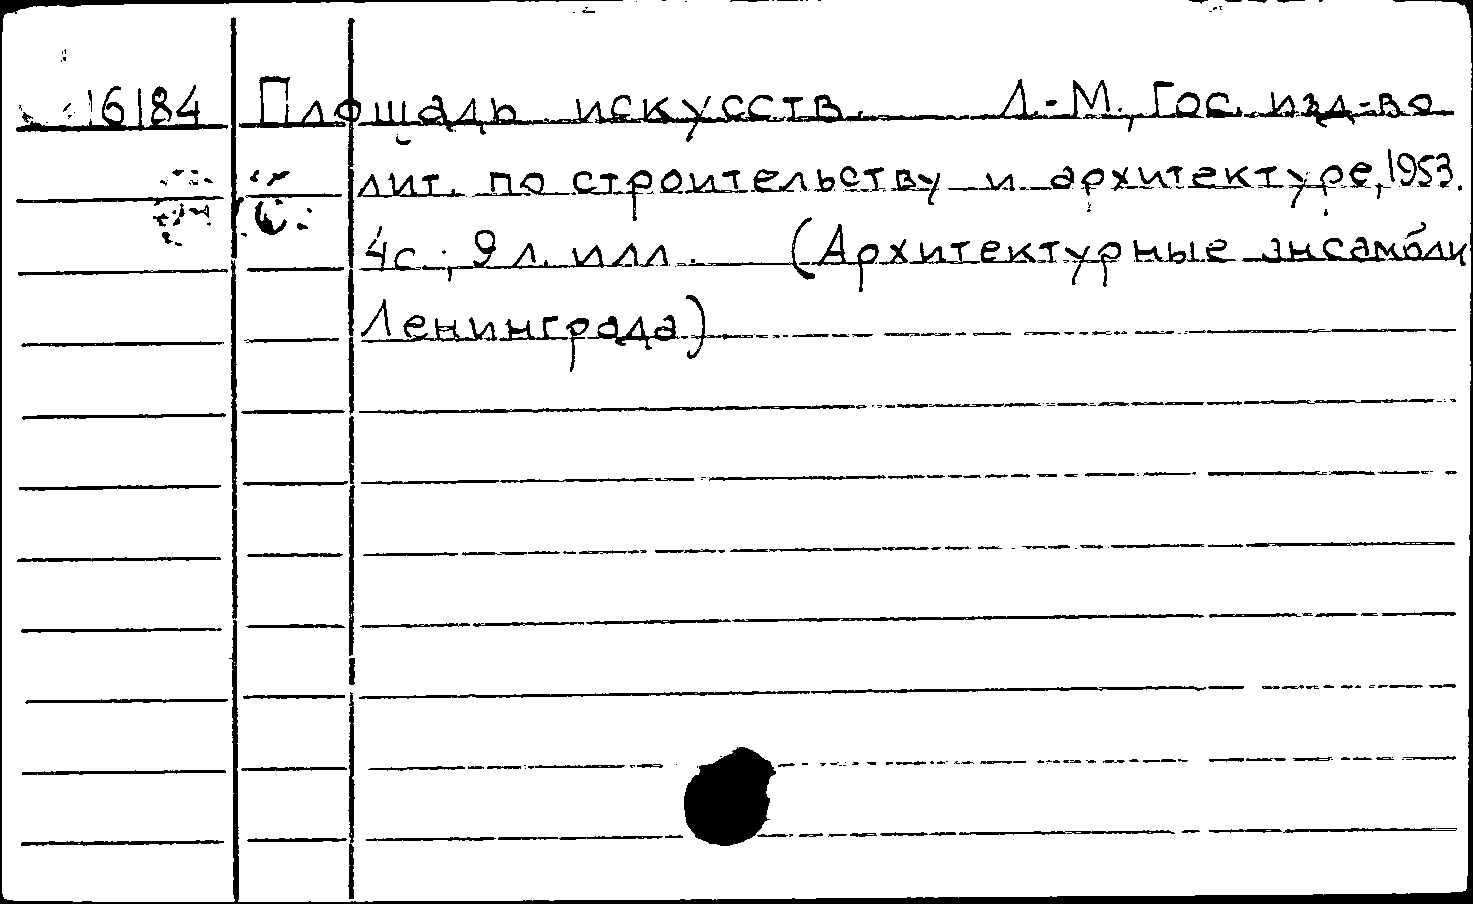 16184 Площадь искусств. Л.-М., Гос. изд-во
лит. по строительству и архитектуре, 1953.
4с; 9 л. илл. (Архитектурные ансамбли
Ленинграда)